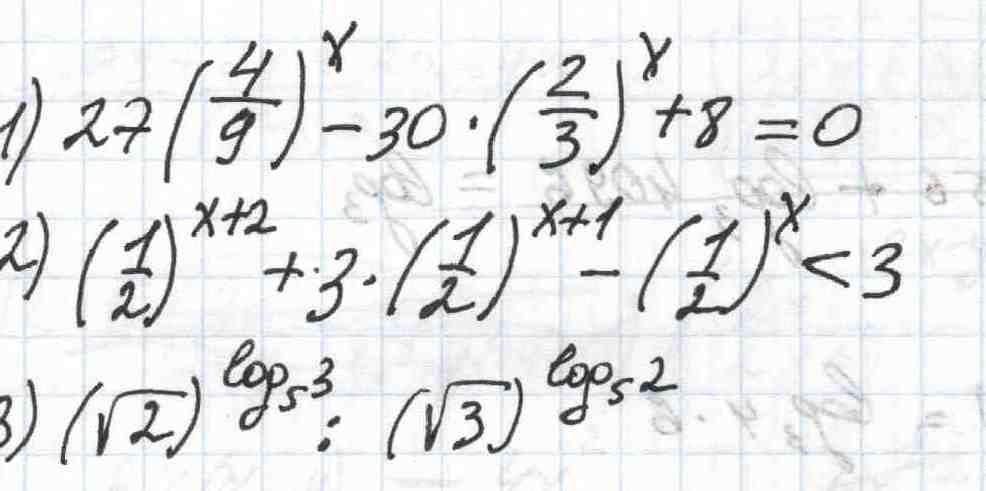 1) 27(4/9)^x - 30·(2/3)^x + 8 = 0
2) (1/2)^(x+2) + 3·(1/2)^(x+1) - (1/2)^x < 3
3) (√2)^(log₅3) : (√3)^(log₅2)